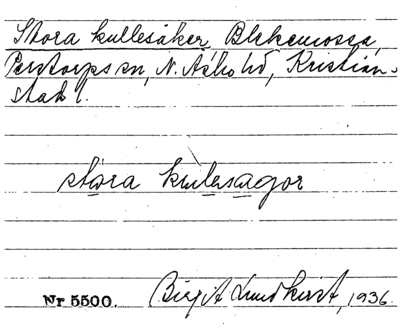 Stora kullesåker, Blekemossa,
Perstorps sn, N. Åsbo hd, Kristian-
stads l.
stora kulesagor
Nr 5500. Birgit Lundkvist, 1936.